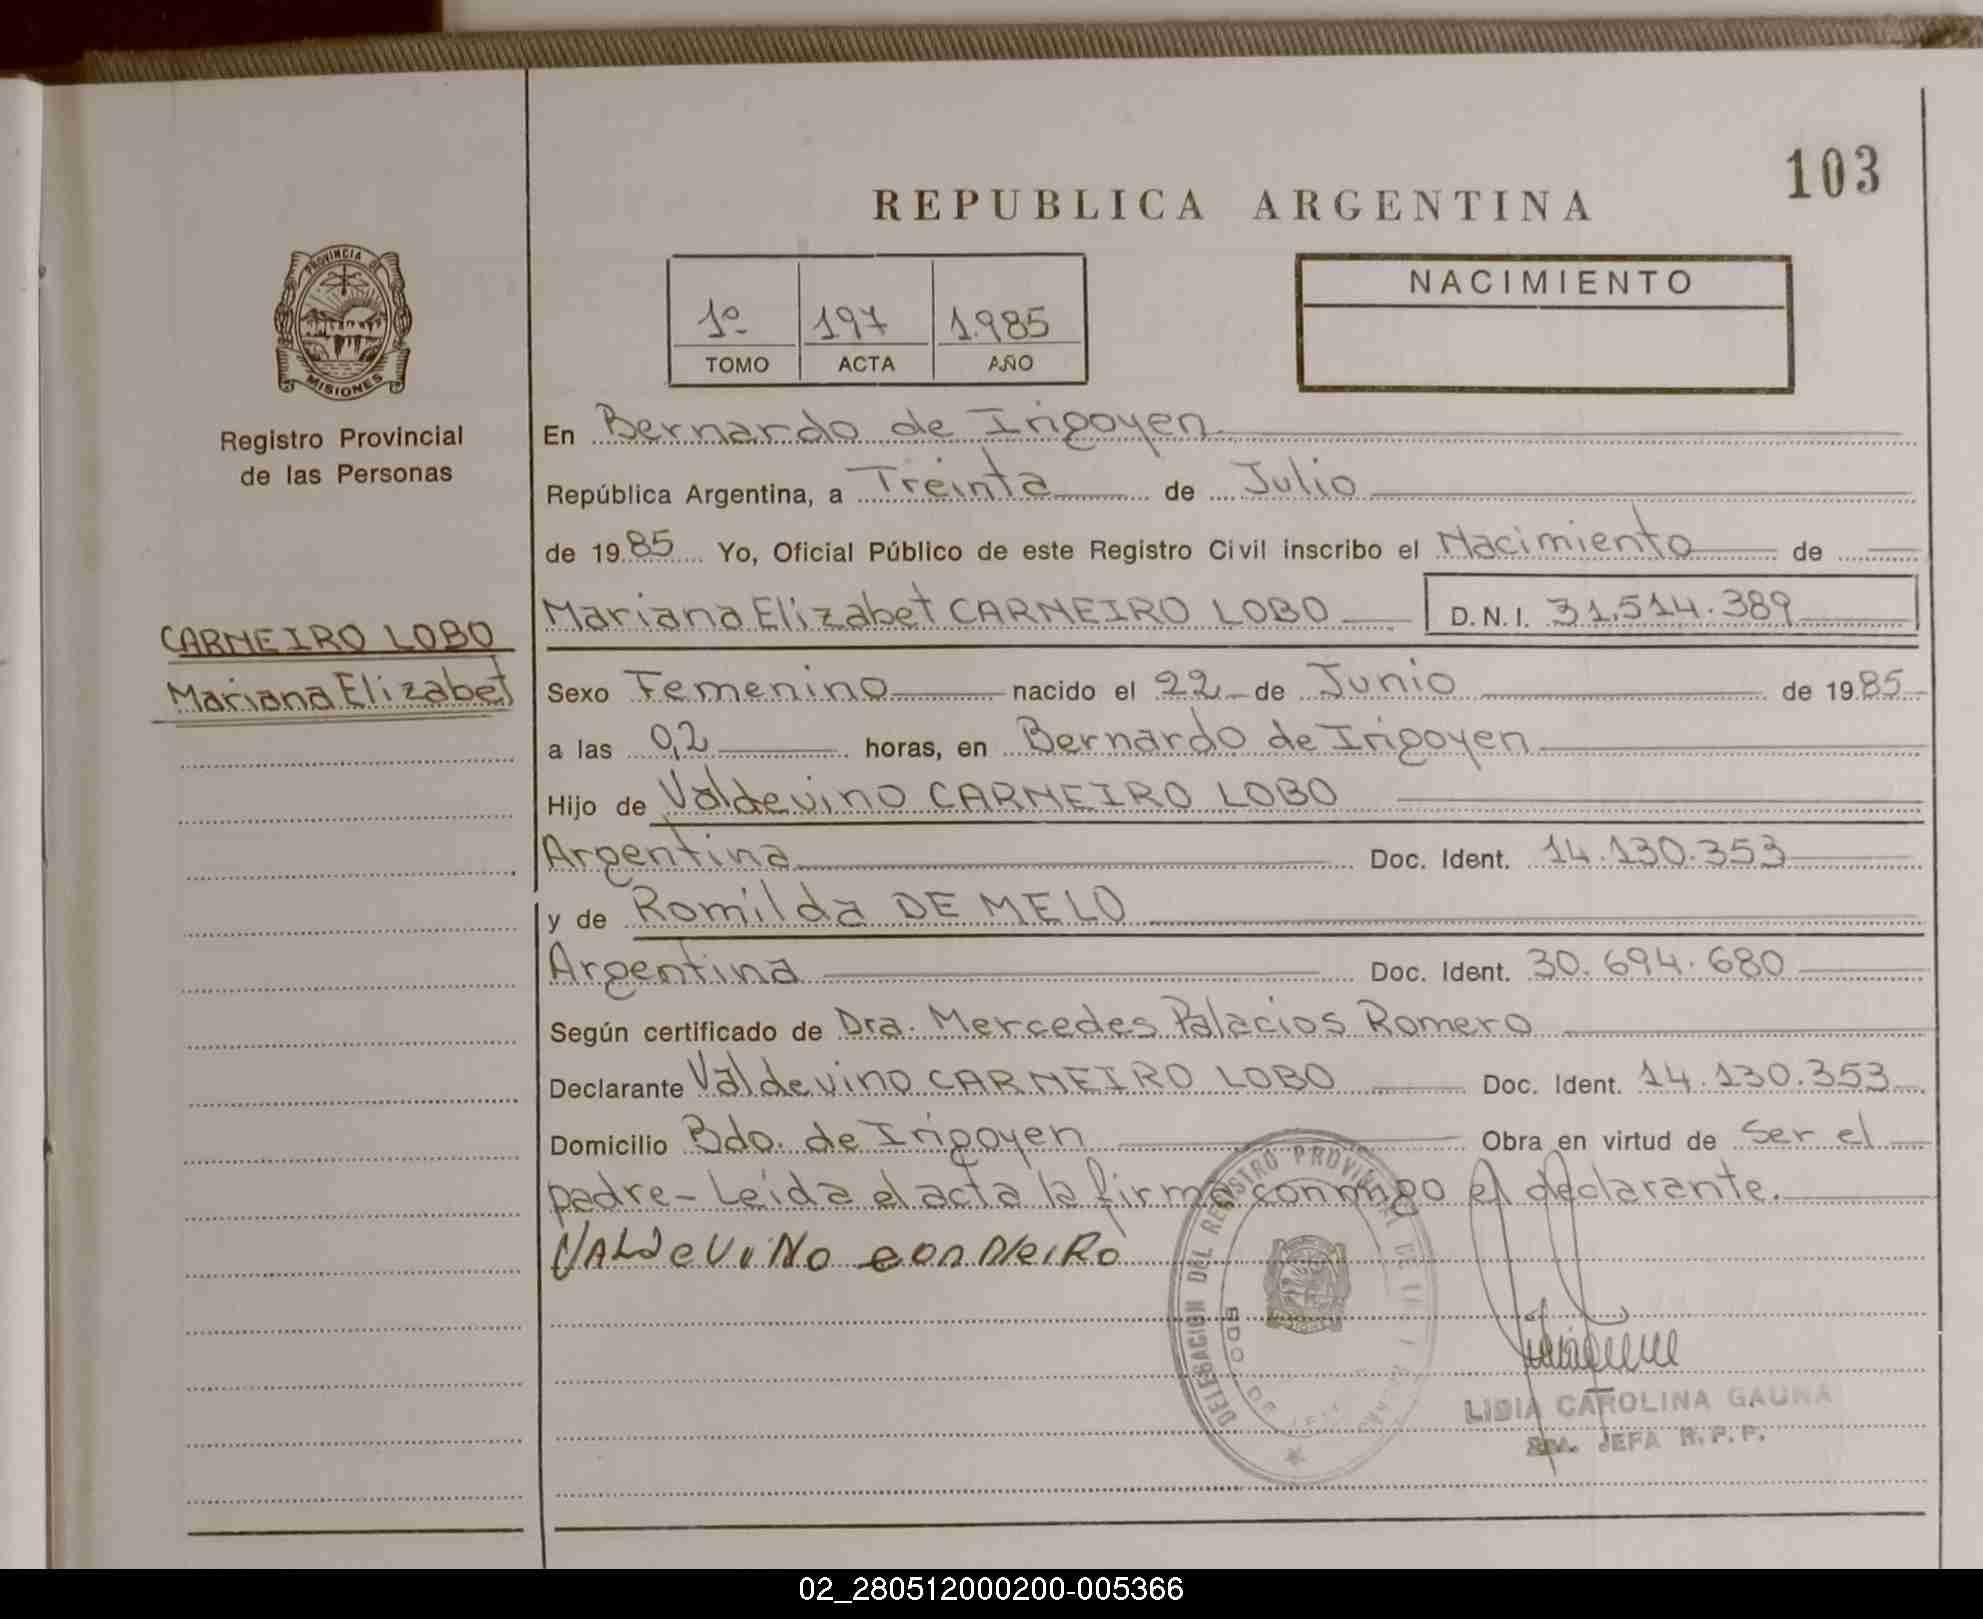 103
REPUBLICA ARGENTINA
PROVINCIA DE
MISIONES
Registro Provincial
de las Personas
1º 197 1.985
TOMO ACTA AÑO
NACIMIENTO
En Bernardo de Irigoyen
República Argentina, a Treinta de Julio
de 1985 Yo, Oficial Público de este Registro Civil inscribo el Nacimiento de
CARNEIRO LOBO
Mariana Elizabet
Mariana Elizabet CARNEIRO LOBO D.N.I. 31.514.389
Sexo Femenino nacido el 22 de Junio de 1985
a las 0,2 horas, en Bernardo de Irigoyen
Hijo de Valdevino CARNEIRO LOBO
Argentina Doc. Ident. 14.130.353
y de Romilda DE MELO
Argentina Doc. Ident. 30.694.680
Según certificado de Dra. Mercedes Palacios Romero
Declarante Valdevino CARNEIRO LOBO Doc. Ident. 14.130.353
Domicilio Bdo. de Irigoyen Obra en virtud de ser el
padre - Leida el acta la firma conmigo el declarante.
VALDEVINO
DELEGACION DEL REGISTRO PROVINCIAL DE LAS
BDO. DE
LIDIA CAROLINA GAUNA
JEFA R.P.P.
02_280512000200-005366